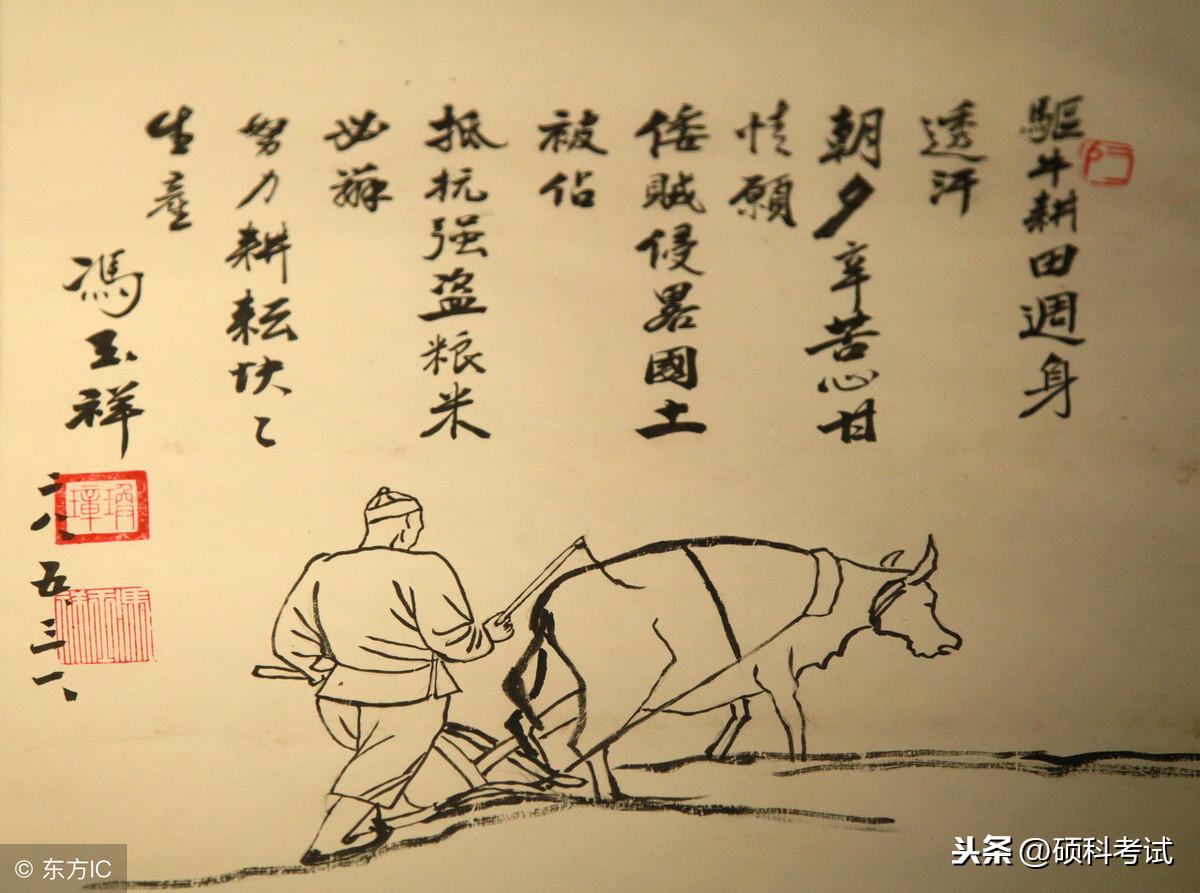 驅牛耕田週身
透汗
朝夕辛苦心甘
情願
倭贼侵畧國土
被佔
抵抗强盗粮米
必辦
努力耕耘快々
生產
馮玉祥
二八、五、三一、
© 东方IC
头条 @硕科考试